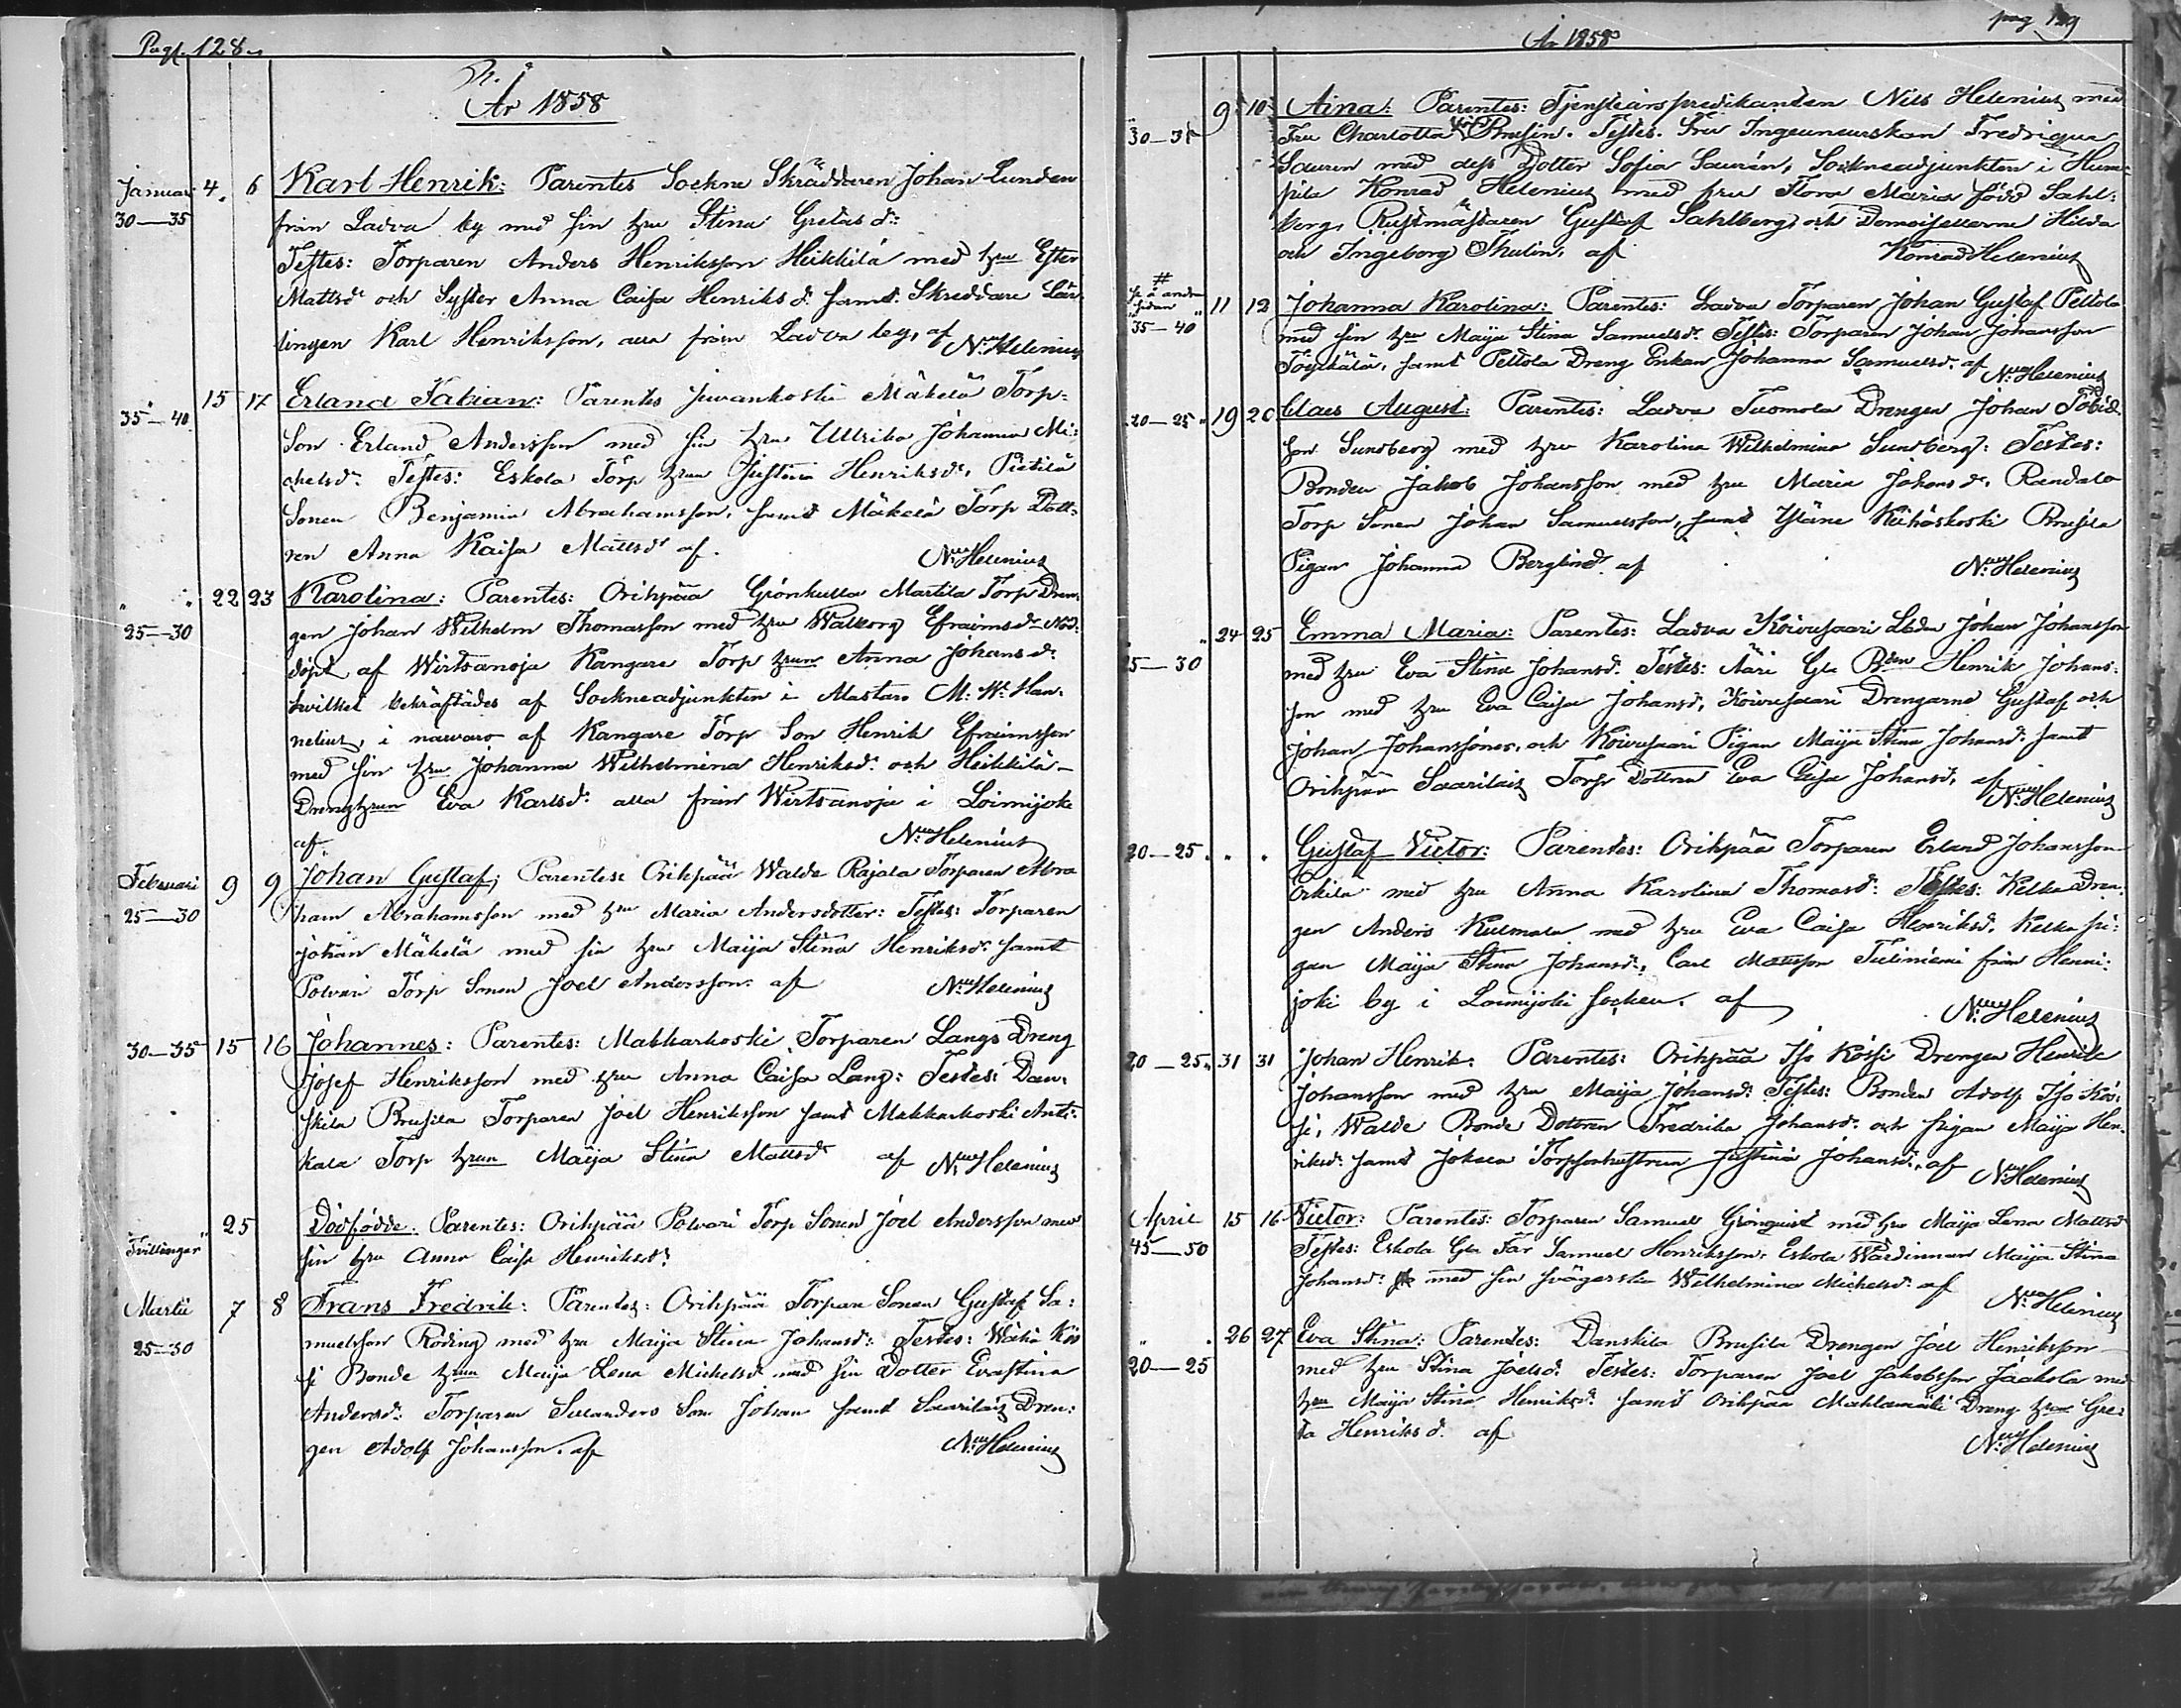 Pag. 128
År 1858
Januari 4. 6 Karl Henrik: Parentes Sockne Skräddaren Johan Lunden
30—35 från Ladva by med sin hru Stina Gretas dr:
Testes: Torparen Anders Henriksson Heikkilä med hru Ester
Mattsdr och Syster Anna Caisa Henriksdr samt Skreddare Lär-
lingen Karl Henriksson, alla från Ladva by, af Nils Helenius
15 17 Erland Fabian: Parentes Juvankoski Mäkelä Torp-
35—40 Son Erland Andersson med sin hru Ulrika Johanna Mi-
chelsdr: Testes: Eskola Torp hrun Justina Henriksdr, Pietilä
Sonen Benjamin Abrahamsson, samt Mäkelä Torp Dott-
ren Anna Kaisa Mattsdr af. Nils Helenius
" " 22 23 Karolina: Parentes: Orihpää Grönkulla Martila Torp Dren-
25—30 gen Johan Wilhelm Thomasson med hru Walborg Efraimsdr Nöd-
döpt af Wirtsanoja Kangare Torp hrun Anna Johansdr:
hvilket bekräftades af Sockneadjunkten i Alastaro M. W. Han-
nelius, i närvaro af Kangare Torp Son Henrik Efraimsson
med sin hru Johanna Wilhelmina Henriksdr: och Heikkilä-
Drenghrun Eva Karlsdr: alla från Wirtsanoja i Loimijoki
af. Nils Helenius
Februari 9 9 Johan Gustaf; Parentes: Orihpää Walde Rajala Torparen Abra
25—30 ham Abrahamsson med hru Maria Andersdotter: Testes: Torparen
Johan Mäkelä med sin hru Maija Stina Henriksdr: samt
Polvari Torp Sonen Joel Andersson: af Nils Helenius
30—35 15 16 Johannes: Parentes: Makkarkoski Torparen Langs Dreng
Josef Henriksson med hru Anna Caisa Lang: Testes: Dan-
skila Brusila Torparen Joel Henriksson samt Makkarkoski Anti-
kala Torp hrun Maija Stina Mattsdr af Nils Helenius
25 Dödfödde. Parentes: Orihpää Polvari Torp Sonen Joel Andersson med
"Tvillingar" sin hru Anna Caisa Henriksdr:
Martii 7 8 Frans Fredrik: Parentes: Orihpää Torpare Sonen Gustaf Sa-
25—30 muelsson Röding med hru Maija Stina Johansdr: Testes: Kös
si Bonde hrun Maija Lena Michelsdr med sin Dotter Evastina
Andersdr: Torparen Sulanders Son Johan samt Saarilais Dren-
gen Adolf Johansson. af Nils Helenius
År 1858 pag 129
9 10 Aina: Parentes: Tjensteårspredikanten Nils Helenius med
30—35 Fru Charlotta Brusin. Testes. Fru Ingenieurskan Fredrique
Sauren med dess Dotter Sofia Saurén, Sockneadjunkten i Hum-
pila Konrad Helenius med fru Flora Maria född Sahl-
berg, Rustmästaren Gustaf Sahlberg och Demoisellerna Hilda
och Ingeborg Thulin, af Konrad Helenius
# å andra sidan
35—40 11 12 Johanna Karolina: Parentes: Ladva Torparen Johan Gustaf Peltola
med sin hru Maija Stina Samuelsdr. Testes: Torparen Johan Johansson
samt Peltola Dreng Enkan Johanna Samuelsdr. af Nils Helenius
20—25 " 19 20 Claes August: Parentes: Ladva Tuomola Drengen Johan
son Sundberg med hru Karolina Wilhelmina Sundberg: Testes:
Bonden Jakob Johansson med hru Maria Johansdr. Randala
Torp Sonen Johan Samuelsson, samt Yläne Keihäskoski Brusila
Pigan Johanna Berglind. af Nils Helenius
" 24 25 Emma Maria: Parentes: Ladva Koivusaari Johan Johansson
25—30 med hru Eva Stina Johansdr. Testes: Ääri Gla Bden Henrik Johans-
son med hru Eva Caisa Johansdr, Koivusaari Drengarne Gustaf och
Johan Johanssöner, och Koivusaari Pigan Maija Stina Johansdr: samt
Orihpää Saarilais Torp Dottren Eva Caisa Johansdr. af Nils Helenius
20—25 . " . Gustaf Victor: Parentes: Orihpää Torparen Erland Johansson
Orkila med hru Anna Karolina Thomasdr: Testes: Kelka Dren-
gen Anders Kulmala med hru Eva Caisa Henriksdr. Kelka Pi-
gan Maija Stina Johansdr, Carl Mattsson Tuliniemi från Henni-
joki by i Loimijoki socken. af Nils Helenius
20—25 " 31 31 Johan Henrik: Parentes: Orihpää Iso Kössi Drengen Henrik
Johansson med hru Maija Johansdr: Testes: Bonden Adolf Iso Kös-
si, Walde Bonde Dottren Fredrika Johansdr. och Pigan Maija Hen-
riksdr: samt Jokela Torpsonhustrun Justina Johansdr. af Nils Helenius
April 15 16 Victor: Parentes: Torparen Samuel Grönquist med hru Maija Lena Mattsdr
45—50 Testes: Eskola Gla Far Samuel Henriksson, Eskola Wärdinnan Maija Stina
Johansdr: med sin svägerska Wilhelmina Michelsdr: af Nils Helenius
" . 26 27 Eva Stina: Parentes: Danskila Brusila Drengen Joel Henriksson
20—25 med hru Stina Joelsdr. Testes: Torparen Joel Jakobsson Jaakola med
hru Maija Stina Henriksdr: samt Orihpää Mahlamäki Dreng hrun Gre-
ta Henriksdr. af Nils Helenius